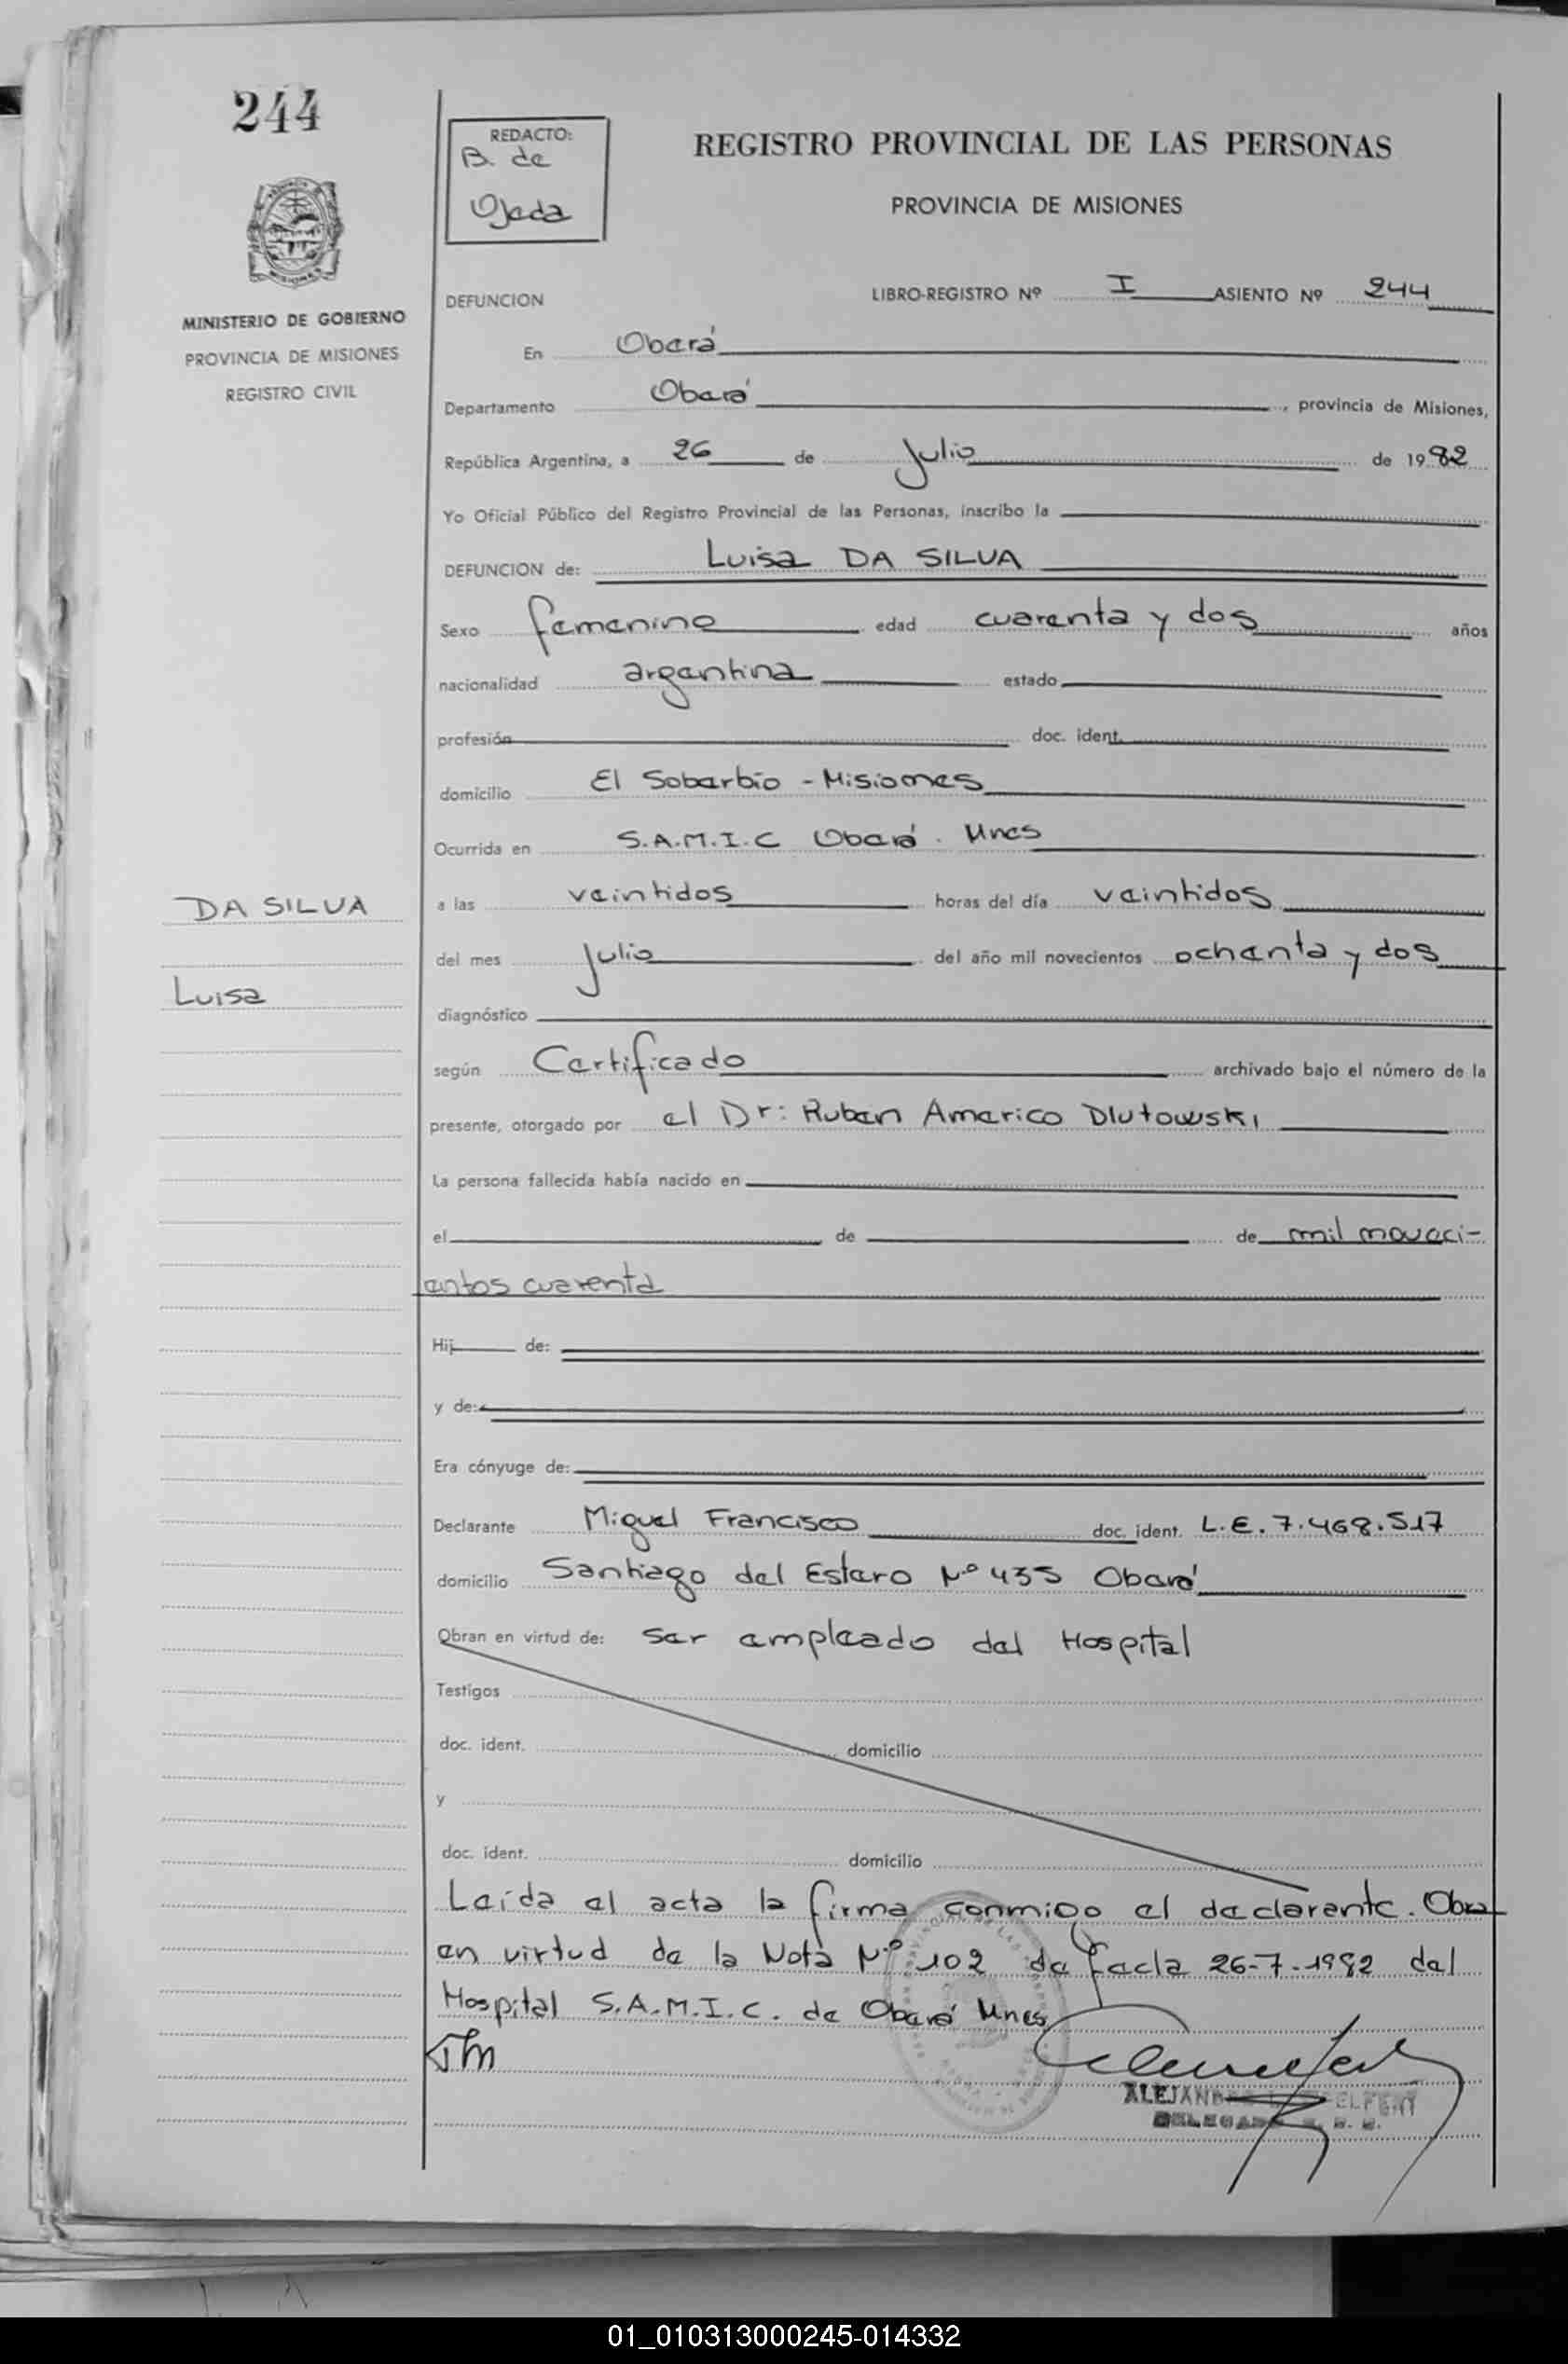 244
REDACTO:
B. de
Ojeda
REGISTRO PROVINCIAL DE LAS PERSONAS
PROVINCIA DE MISIONES
MINISTERIO DE GOBIERNO
PROVINCIA DE MISIONES
REGISTRO CIVIL
DEFUNCION LIBRO-REGISTRO Nº I ASIENTO Nº 244
En Oberá
Departamento Oberá, provincia de Misiones,
República Argentina, a 26 de Julio de 1982
Yo Oficial Público del Registro Provincial de las Personas, inscribo la
DEFUNCION de: Luisa DA SILVA
Sexo femenino edad cuarenta y dos años
nacionalidad argentina estado
profesión doc. ident.
domicilio El Soberbio - Misiones
Ocurrida en S.A.M.I.C Oberá. Mnes
DA SILVA
Luisa
a las veintidos horas del día veintidos
del mes Julio del año mil novecientos ochenta y dos
diagnóstico
según Certificado archivado bajo el número de la
presente, otorgado por el Dr: Ruben Americo Dlutowski
La persona fallecida había nacido en
el de de mil noveci-
entos cuarenta
Hij de:
y de:
Era cónyuge de:
Declarante Miguel Francisco doc. ident. L.E. 7.468.517
domicilio Santiago del Estero Nº 435 Oberá
Obran en virtud de: ser empleado del Hospital
Testigos
doc. ident. domicilio
y
doc. ident. domicilio
Leída el acta la firma conmigo el declarante. Obra
en virtud de la Nota Nº 102 de fecla 26-7-1982 del
Hospital S.A.M.I.C. de Oberá Mnes
01_010313000245-014332